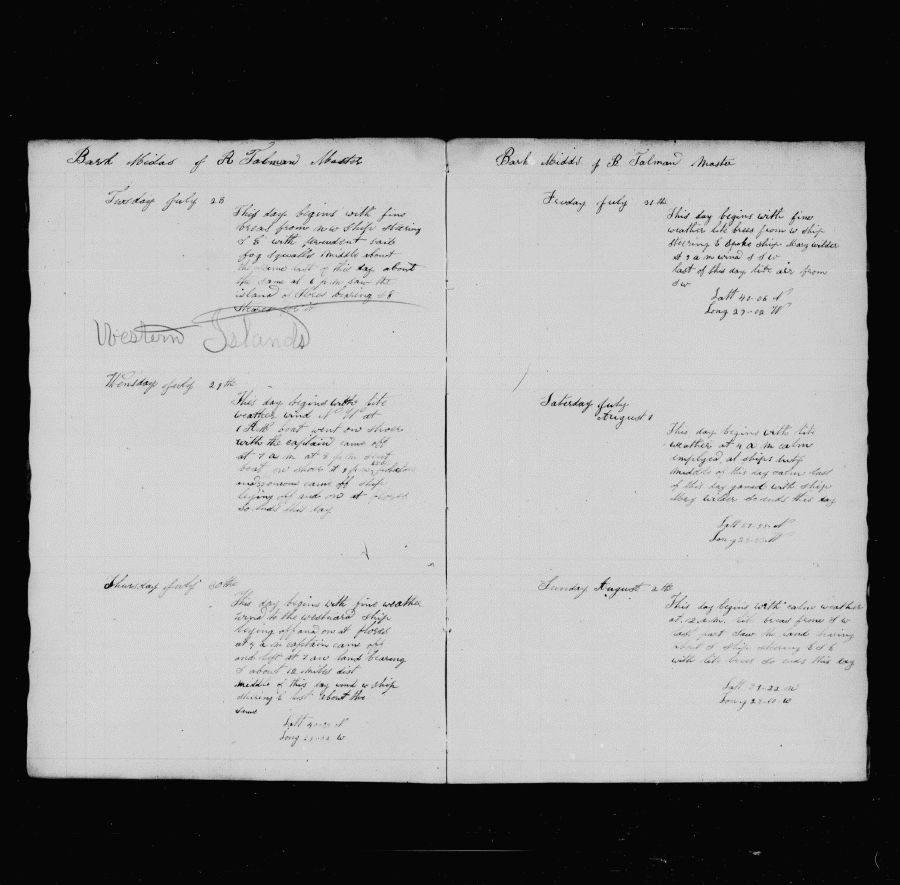 Bark Midas of R Talman Master
Tusday July 28
This day begins with fine
breas from NW Ship stering
S E with prudent sails
fog squalls middle about
the same last of this day about
the same at 6 p m saw the
island of flores bearing S E
Western Islands
Wensday July 29th
This day begins with lite
weather wind N W at
1 A M boat went on shore
with the captain came off
at 7 a m at 8 p m sent
boat on shore at 9 p m potatoes
and onions came off ship
lying off and on at flores
So ends this day
Thursday July 30th
This day begins with fine weather
wind to the westward ship
lying off and on at flores
at 9 a m captain came off
and left at 7 am land bearing
S about 12 miles dist
middle of this day wind w ship
stering E last about the
same
Latt 40- N
Long W
Bark Midds of B Talman Master
Friday July 31th
This day begins with fine
weather lite brees from W ship
steering E spoke ship Mary Wilder
at 9 a m wind S S W
last of this day lite air from
S W
Latt 40-06 N
Long 29-02 W
Saturday July
August 1
This day begins with lite
weather at 4 a m calm
employed at ships duty
middle of this day calm last
of this day gamed with ship
Mary wilder So ends this day
Latt N
Long W
Sunday August 2th
This day begins with calm weather
at 12 a.m. lite breas from S W
last part saw the land baring
about S ship stearing E S E
with lite brees So ends this day
Latt 39-22 N
Long W